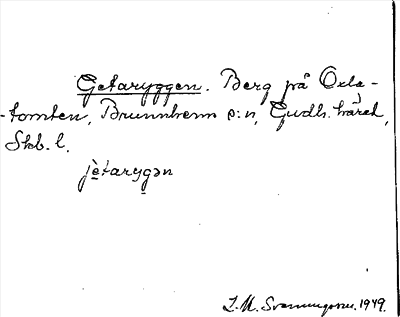 Getaryggen. Berg på Oxla-
-tomten, Brunnhem s:n, Gudh. härad,
Skb. l.
jètarygən
L. M. Svenungsson. 1949.